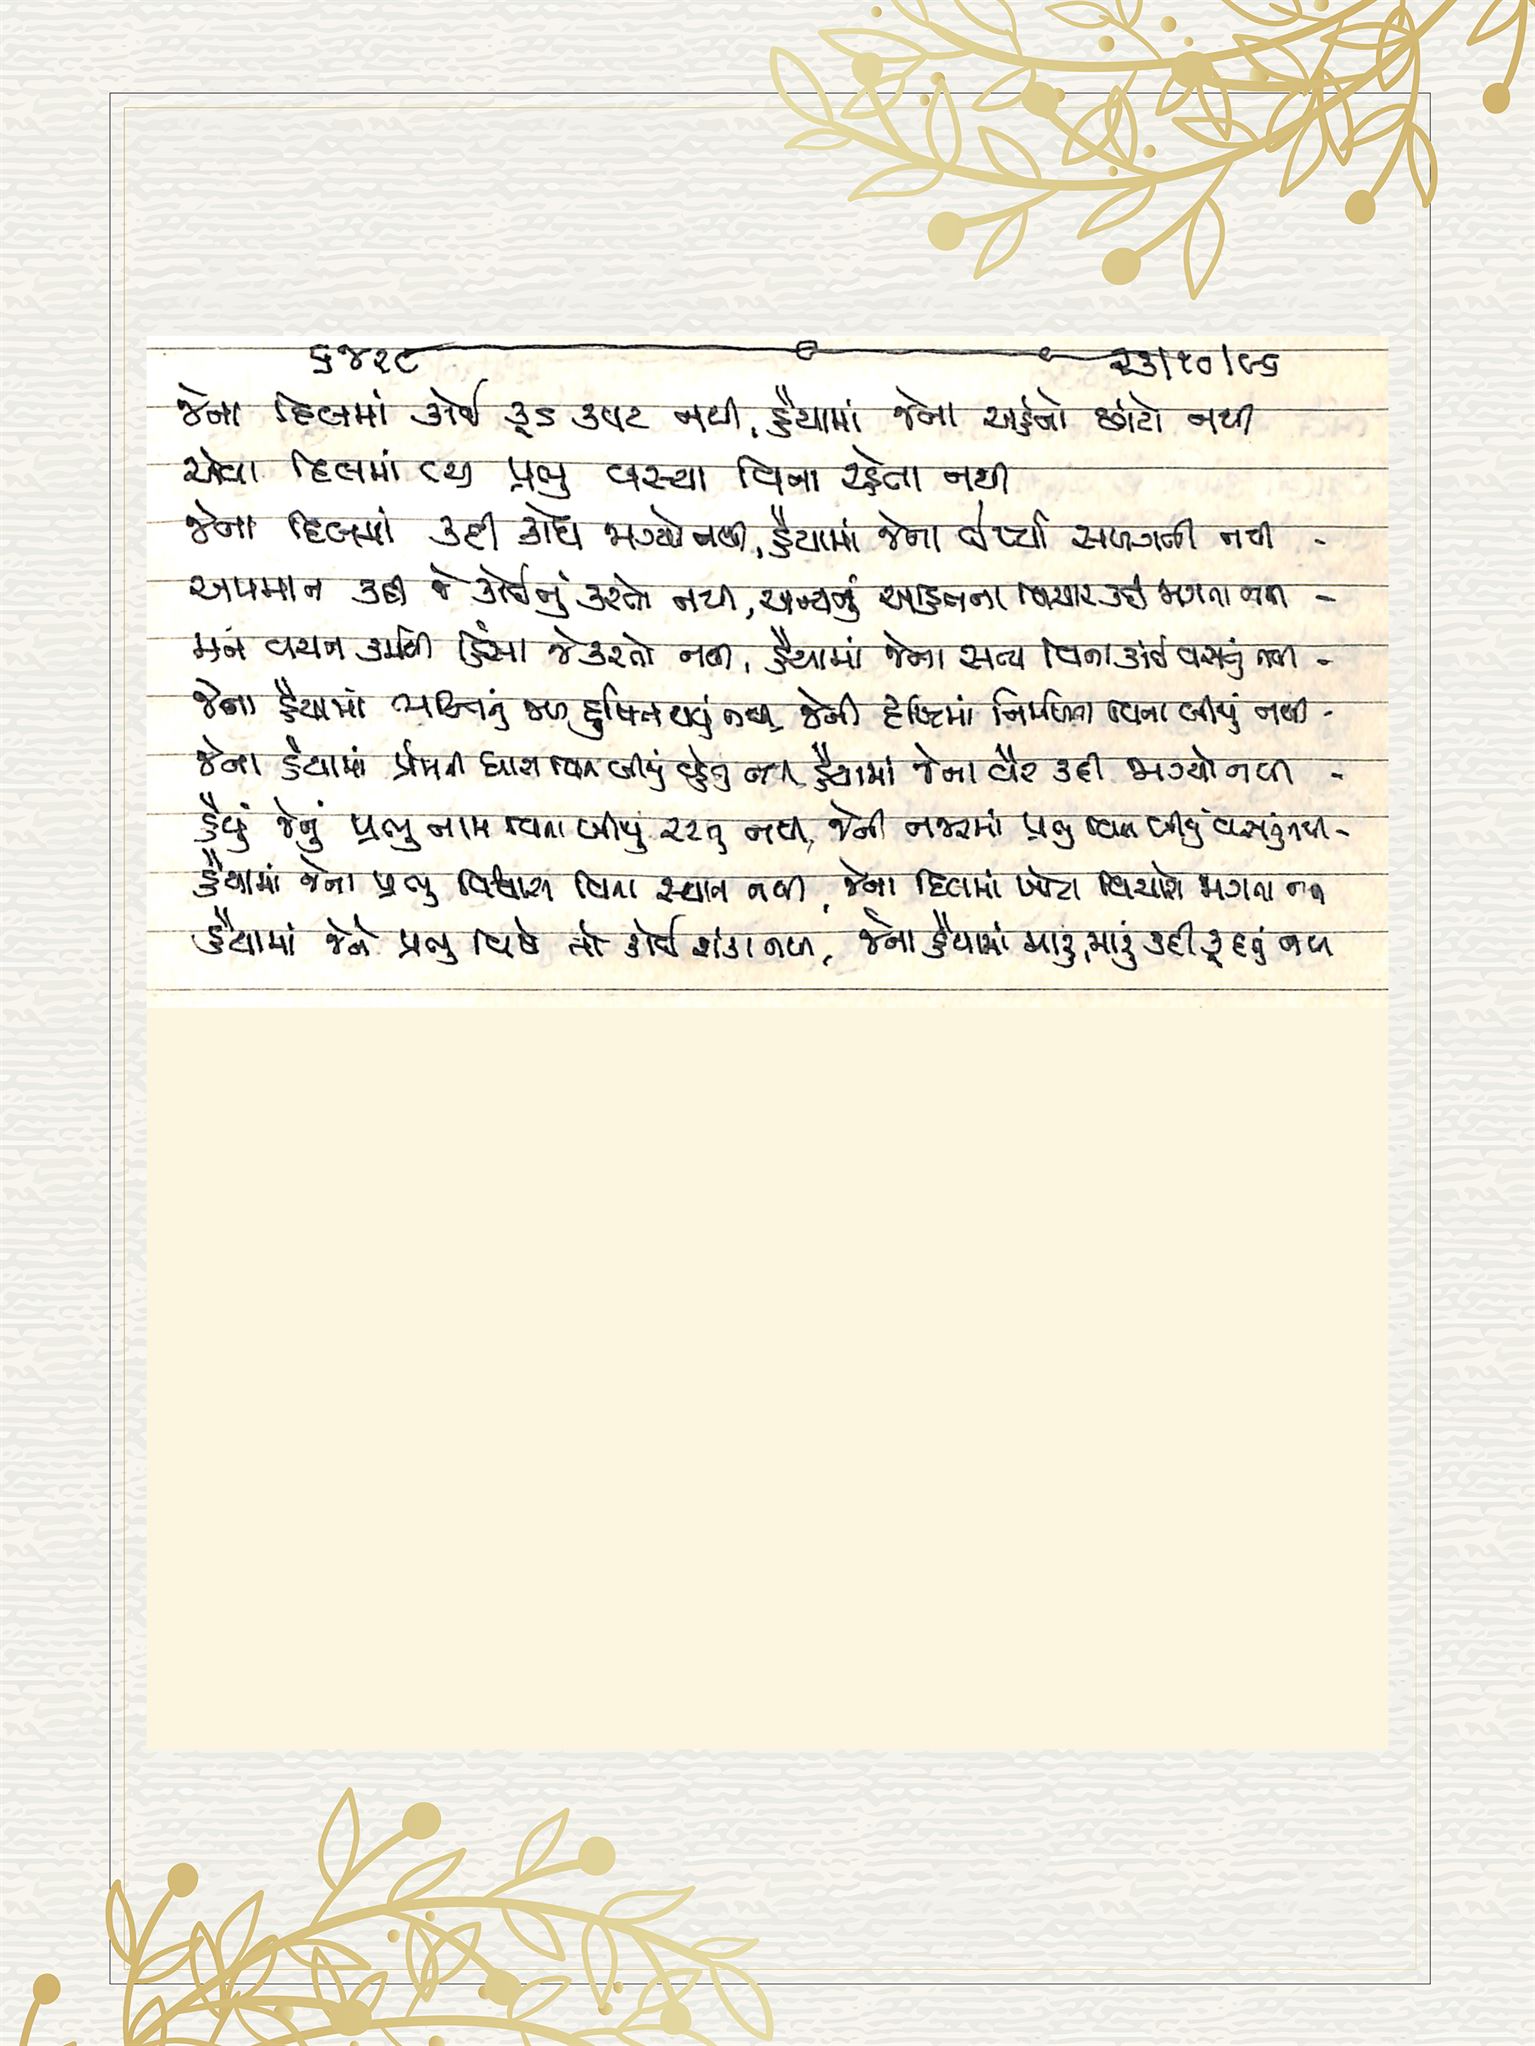 ૬૪૨૯ ૨૩/૧૦/૯૬
જેના દિલમાં કોઈ કૂડ કપટ નથી, હૈયામાં જેના અહંનો છાંટો નથી
એવા દિલમાં રે પ્રભુ વસ્યા વિના રહેતા નથી
જેના દિલમાં કદી ક્રોધ જાગ્યો નથી, હૈયામાં જેના ઈર્ષ્યા સળગતી નથી -
અપમાન કદી જે કોઈનું કરતો નથી, અન્યનું અહિતના વિચાર કદી જાગતા નથી -
મન વચન કર્મથી હિંસા જે કરતો નથી, હૈયામાં જેના સત્ય વિના કાંઈ વસતું નથી -
જેના હૈયામાં ભક્તિનું જળ દુષિત થયું નથી, જેની દૃષ્ટિમાં નિર્મળતા વિના બીજું નથી -
જેના હૈયામાં પ્રેમની ધારા વિના બીજું વહેતું નથી, હૈયામાં જેના વૈર કદી જાગ્યો નથી -
હૈયું જેનું પ્રભુ નામ વિના બીજું રટતું નથી, જેની નજરમાં પ્રભુ વિના બીજું વસતું નથી -
હૈયામાં જેના પ્રભુ વિશ્વાસ વિના સ્થાન નથી, જેના દિલમાં ખોટા વિચારો જાગતા નથી
હૈયામાં જેને પ્રભુ વિષે તો કોઈ શંકા નથી, જેના હૈયામાં મારું, મારું કદી કૂદતું નથી